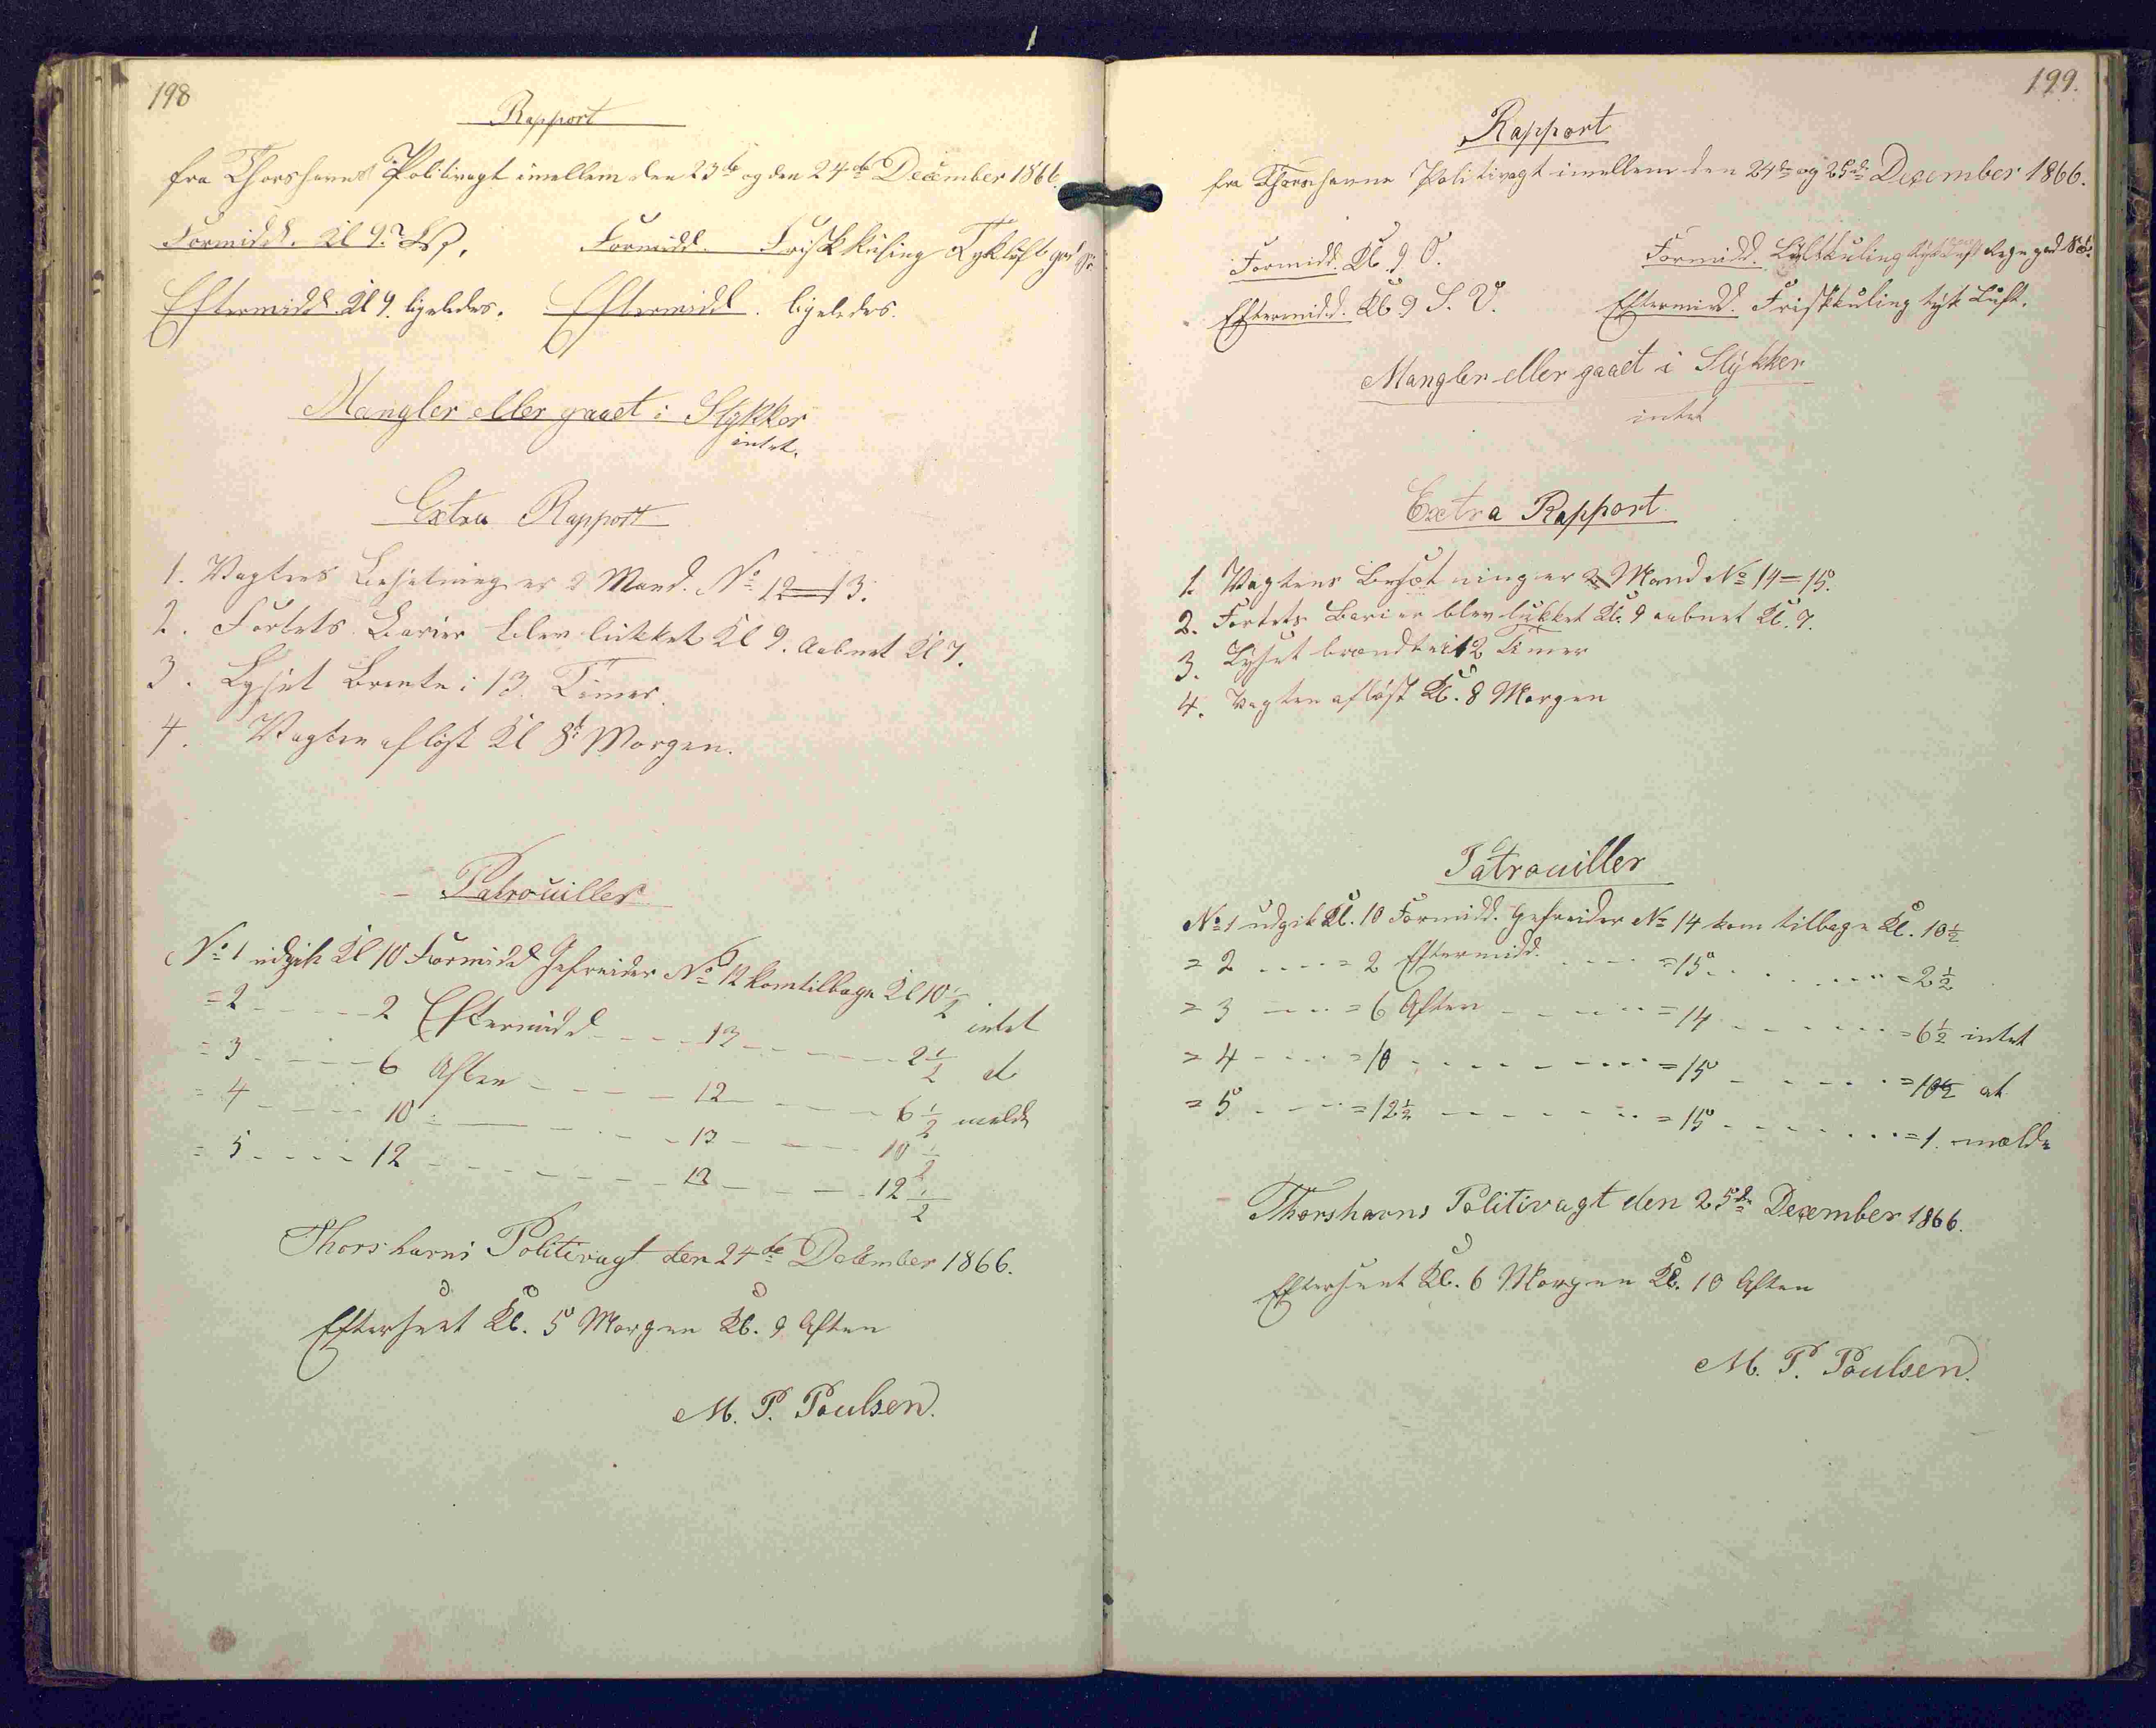 198
Rapport
fra Thorshavns Politivagt imellem den 23de og den 24de December 1866.
Formidd. Kl 9. Formidd. Frisk Kuling Tykluft god
Eftermidd. Kl 9. ligeledes. Eftermidd. ligeledes.
Mangler eller gaaet i Stykker
intet.
Extra Rapport
1. Vagtens Besætning er 2 Mand. No 12 = 13.
2. Fortets Barier blev lukket Kl 9. Aabnet Kl 7.
3. Lyset Brente i 13 Timer.
4. Vagten afløst Kl 8 Morgen.
Patrouiller
No 1 udgik Kl 10 Formidd Gefreider No 12 kom tilbage Kl 10 1/2
= 2 - - - - - 2 Eftermidd - - - - 13 - - - - - - 2 1/2 intet
= 3 - - - - - 6 Aften - - - - 12 - - - - - 6 1/2 at
= 4 - - - - 10 - - - - - 13 - - - - 10 1/2 melde
= 5 - - - - 12 - - - - - - - 13 - - - - 12 1/2
Thorshavns Politivagt den 24de December 1866.
Efterseet Kl. 5 Morgen Kl. 9 Aften
M. P. Poulsen.
199.
Rapport
fra Thorshavns Politivagt imellem den 24de og 25de December 1866.
Formidd. Kl. 9 O. Formidd. Kuling Luft Regn god
Eftermidd. Kl. 9 S. V. Eftermidd. Friskkuling tyk Luft.
Mangler eller gaaet i Stykker
intet
Extra Rapport
1. Vagtens Besætning er 2 Mand No 14 = 15.
2. Fortets Barier blev lukket Kl. 9 aabnet Kl. 7.
3. Lyset brændte i 12 Timer
4. Vagten afløst Kl. 8 Morgen
Patrouiller
No 1 udgik Kl. 10 Formidd. Gefreider No 14 kom tilbage Kl. 10 1/2
= 2 - - - - = 2 Eftermidd. - - - - = 15 - - - - - - = 2 1/2
= 3 - - - - = 6 Aften - - - - - = 14 - - - - - - = 6 1/2 intet
= 4 - - - - = 10 - - - - - - - = 15 - - - - - = 10 1/2 at
= 5 - - - - = 12 1/2 - - - - - - = 15 - - - - - - - = 1. melde
Thorshavns Politivagt den 25de December 1866.
Efterseet Kl. 6 Morgen Kl. 10 Aften
M. P. Poulsen.